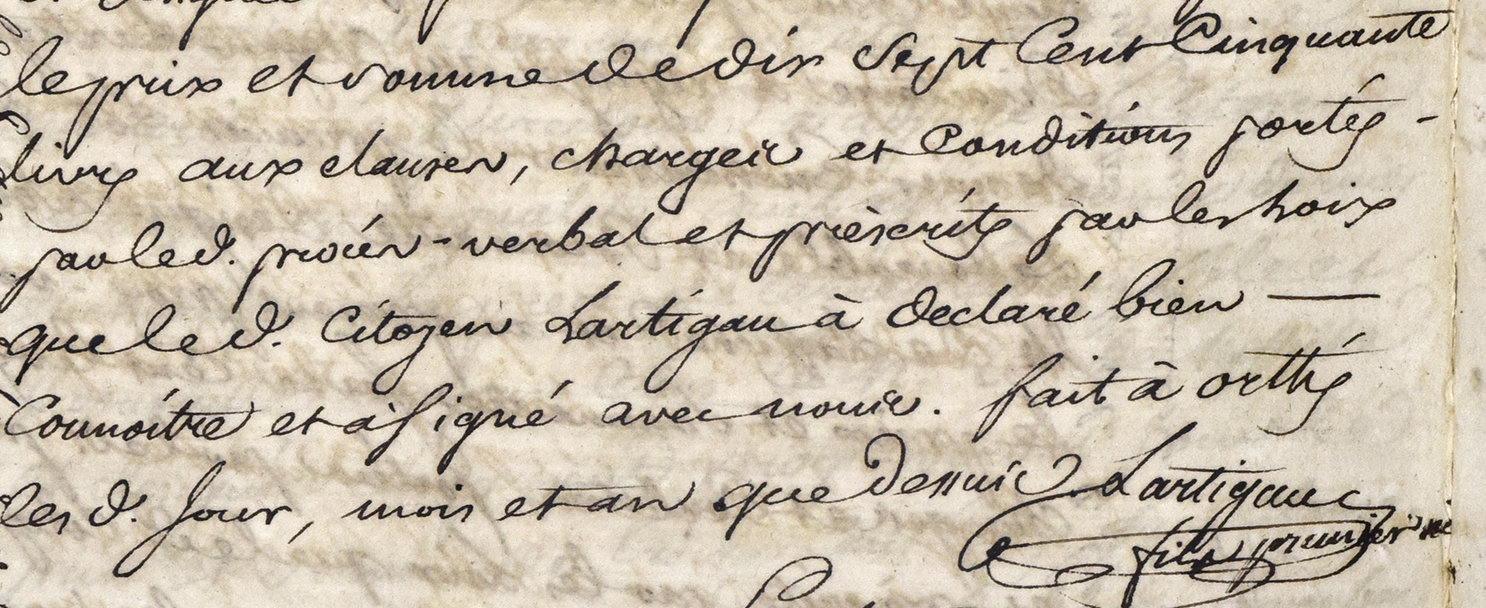 le prix et somme de dix sept Cent Cinquante
livres aux clauses, charges et Conditions portés -
par led. procés-verbal et prèscrits par les Loix
que led. Citoyen Lartigau à declaré bien —
Connoître et à signé avec nous. fait à orthés
les d. Jour, mois et an que dessus Lartigau
fils premier né